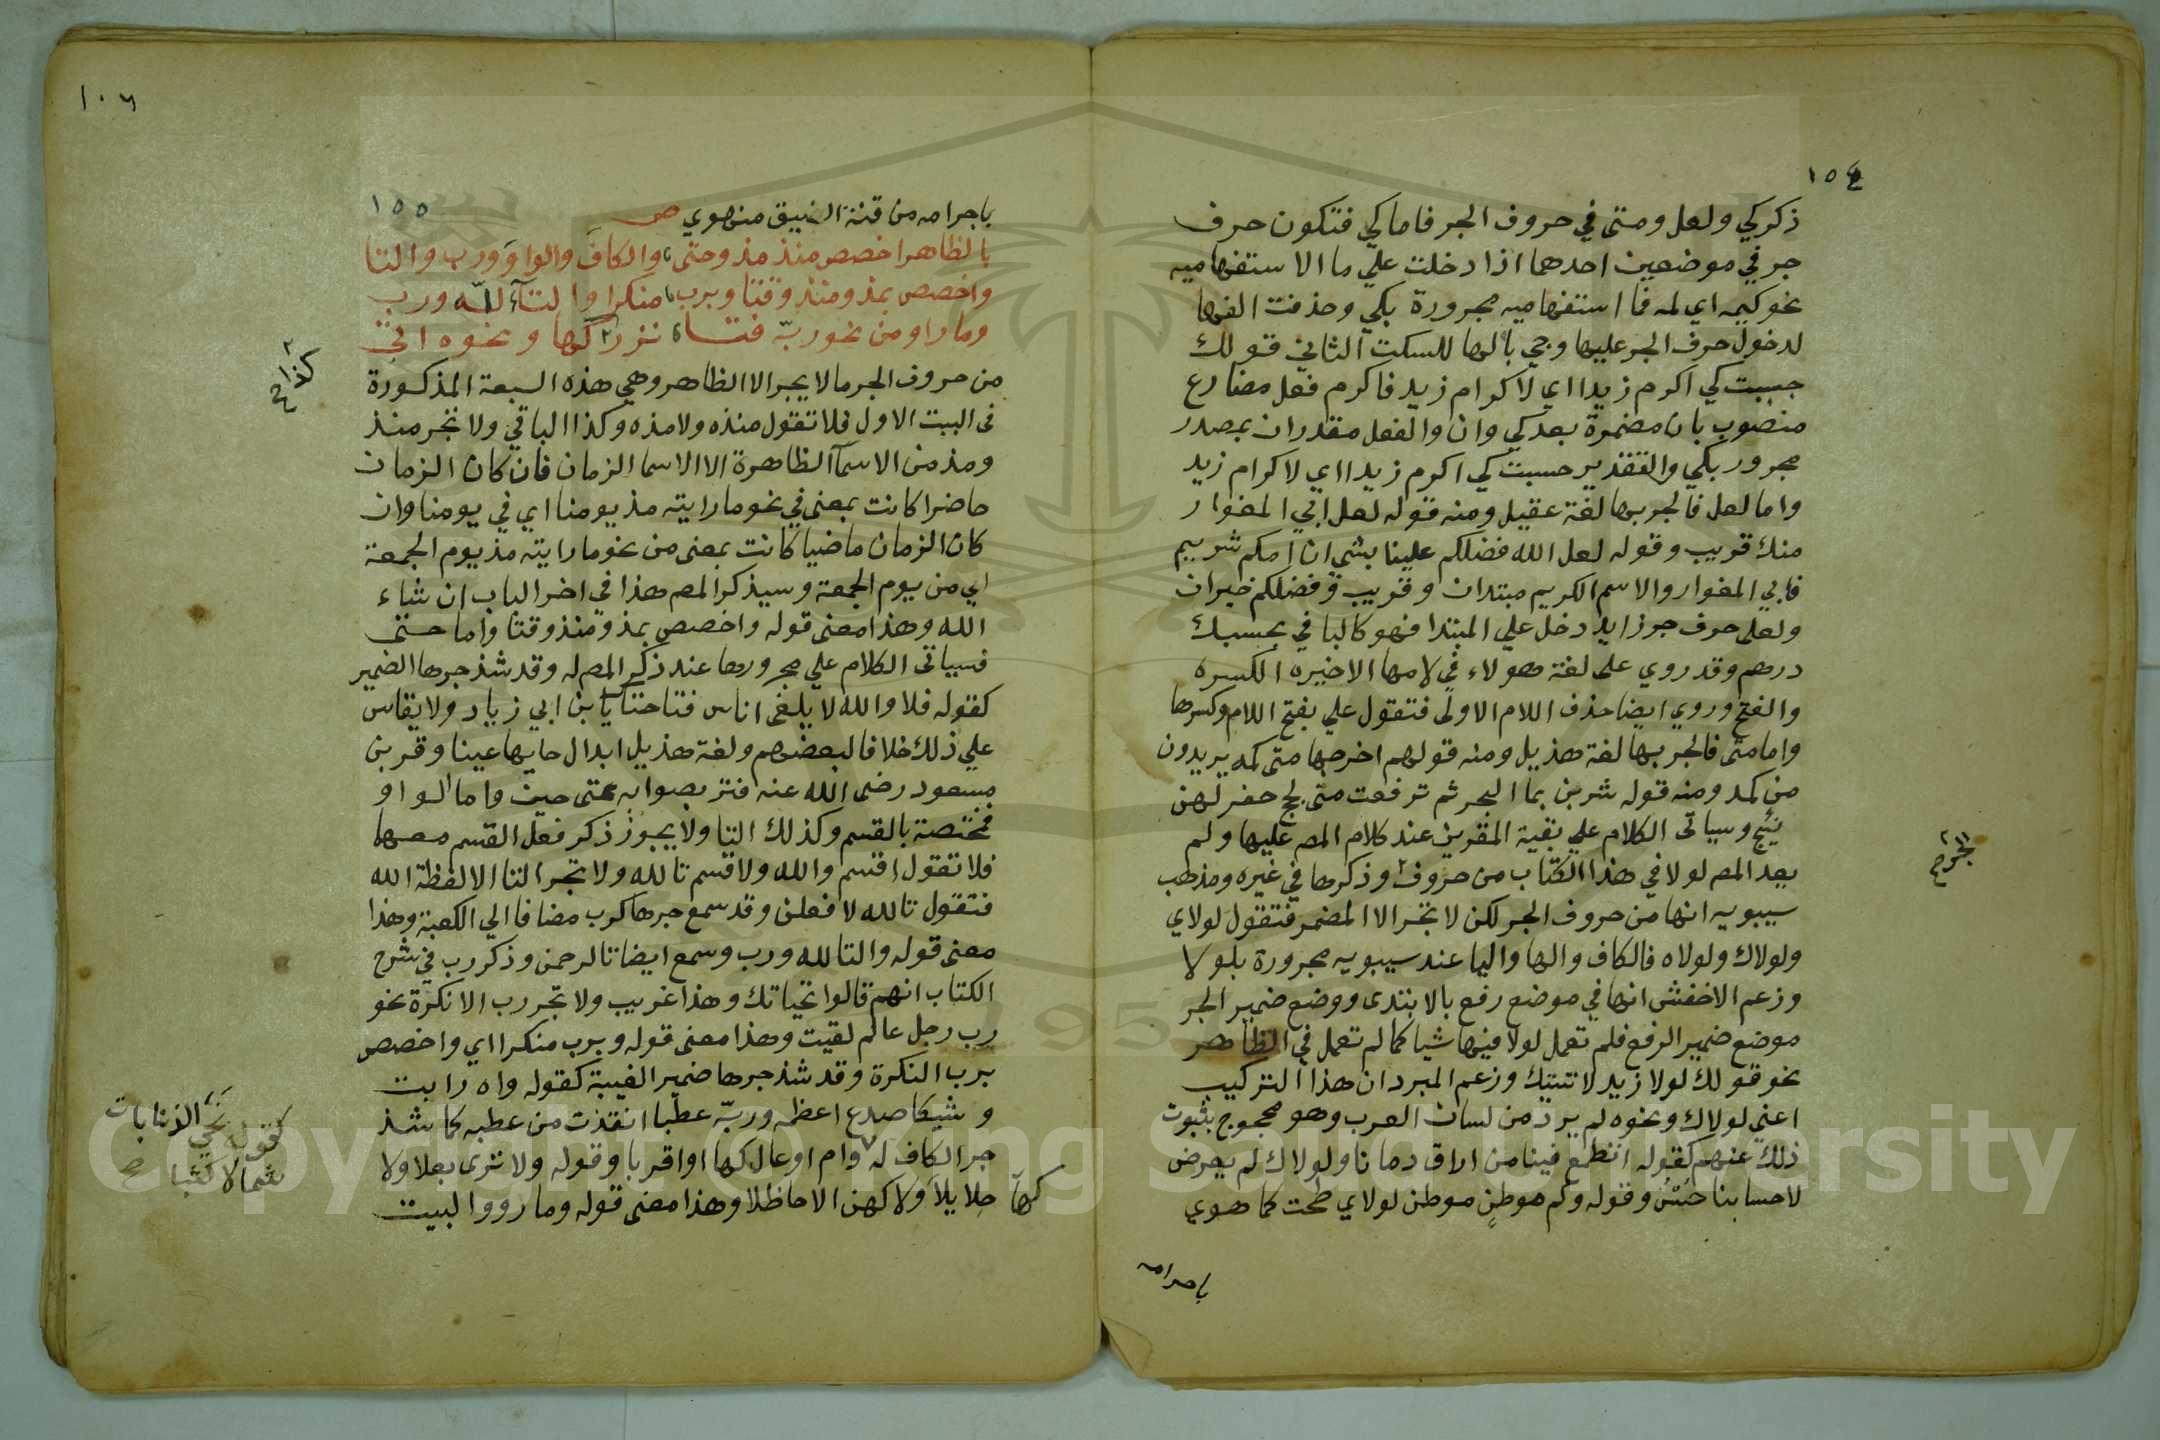 ١٥٤
ذكر كي ولعل ومتى في حروف الجر فاما كي فتكون حرف
جر في موضعين احدهما اذا دخلت علي ما الاستفهاميه
نحو كيمه اي لمه فما استفهاميه مجرورة بكي وحذفت الفها
لدخول حرف الجر عليها وجي بالها للسكت الثاني قولك
جييت كي اكرم زيدا اي لاكرام زيد فاكرم فعل مضارع
منصوب بان مضمرة بعد كي وان والفعل مقدران بمصدر
مجرور بكي والتقدير حسبت كي اكرم زيدا اي لاكرام زيد
واما لعل فالجر بها لغة عقيل ومنه قوله لعل ابي المغوار
منك قريب وقوله لعل الله فضلكم علينا بشي ان امكم شريم
فابي المغوار والاسم الكريم مبتدان وقريب وفضلكم خبران
ولعل حرف جر زايد دخل علي المبتدا فهو كالبا في بحسبك
درهم وقد روي على لغة هولاء في لامها الاخيره الكسره
والفتح وروي ايضا حذف اللام الاولى فتقول علي بفتح اللام وكسرها
واما متى فالجر بها لغة هذيل ومنه قولهم اخرجها متى كمه يريدون
من كمه ومنه قوله شربن بما البحر ثم ترفعت متى لجج خضر لهن
نئيج وسياتى الكلام علي بقية العشرين عند كلام المصـ عليها ولم
يعد المصـ لولا في هذا الكتاب من حروف وذكرها في غيره ومذهب
الجر صح
سيبويه انها من حروف الجر لكن لا تجر الا المضمر فتقول لولاي
ولولاك ولولاه فالكاف والها واليا عند سيبويه مجرورة بلولا
وزعم الاخفش انها في موضع رفع بالابتدى ووضع ضمير الجر
موضع ضمير الرفع فلم تعمل لولا فيها شيا كما لم تعمل في الظاهر
نحو قولك لولا زيد لاتيتك وزعم المبرد ان هذا التركيب
اعني لولاك ونحوه لم يرد من لسان العرب وهو محجوج بثبوت
ذلك عنهم كقوله اتطمع فينا من اراق دمانا ولولاك لم يعرض
لاحسابنا حسن وقوله وكم موطن موطن لولاي طحت كما هوي
باجرامه
١٠٦
١٥٥
باجرامه من قنة النيق منهوي ص
بالظاهر اخصص منذ مذ وحتى والكاف والواو ورب والتا
واخصص بمذ ومنذ وقتا وبرب منكرا والتاء لله ورب
وما راو من نحو ربه فتا نزر كها ونحوه اتي
من حروف الجر ما لا يجر الا الظاهر وهي هذه السبعة المذكورة
في البيت الاول فلا تقول منذه ولا مذه وكذا الباقي ولا تجر منذ
ومذ من الاسما الظاهرة الا الاسما الزمان فان كان الزمان
حاضرا كانت بمعنى في نحو ما رايته مذ يومنا اي في يومنا وان
كان الزمان ماضيا كانت بمعنى من نحو ما رايته مذ يوم الجمعة
اي من يوم الجمعة وسيذكر المصـ هذا في اخر الباب ان شاء
الله وهذا معنى قوله واخصص بمذ ومنذ وقتا واما حتى
فسياتى الكلام علي مجرورها عند ذكر المصـ له وقد شذ جرها الضمير
كقوله فلا والله لا يلفى اناس فتا حتاك يا بن ابي زياد ولا يقاس
علي ذلك خلافا لبعضهم ولغة هذيل ابدال حايها عينا وقر بن
مسعود رضى الله عنه فتربصوا به عتى حين واما الواو
فمختصة بالقسم وكذلك التا ولا يجوز ذكر فعل القسم معها
فلا تقول اقسم والله ولا قسم تالله ولا تجر التا الا لفظة الله
فتقول تالله لا فعلن وقد سمع جرها كرب مضافا الي الكعبة وهذا
معنى قوله والتا لله ورب وسمع ايضا تالرحمن وذكر رب في شرح
الكتاب انهم قالوا تحياتك وهذا غريب ولا تجر رب الا نكرة نحو
رب رجل عالم لقيت وهذا معنى قوله وبرب منكرا اي واخصص
برب النكرة وقد شذ جرها ضمير الغيبة كقوله واه رابت
وشيكا صدع اعظمه وربه عطبا انقذت من عطبه كما شذ
جر الكاف له وام اوعال كها او اقربا وقوله ولا ترى بعلا ولا
كقوله نحي الذنابات
شمالا كثبا صح
كها
حلايلا ولا كهن الا حاظلا وهذا معنى قوله وما رووا البيت
Copyright © King Saud University